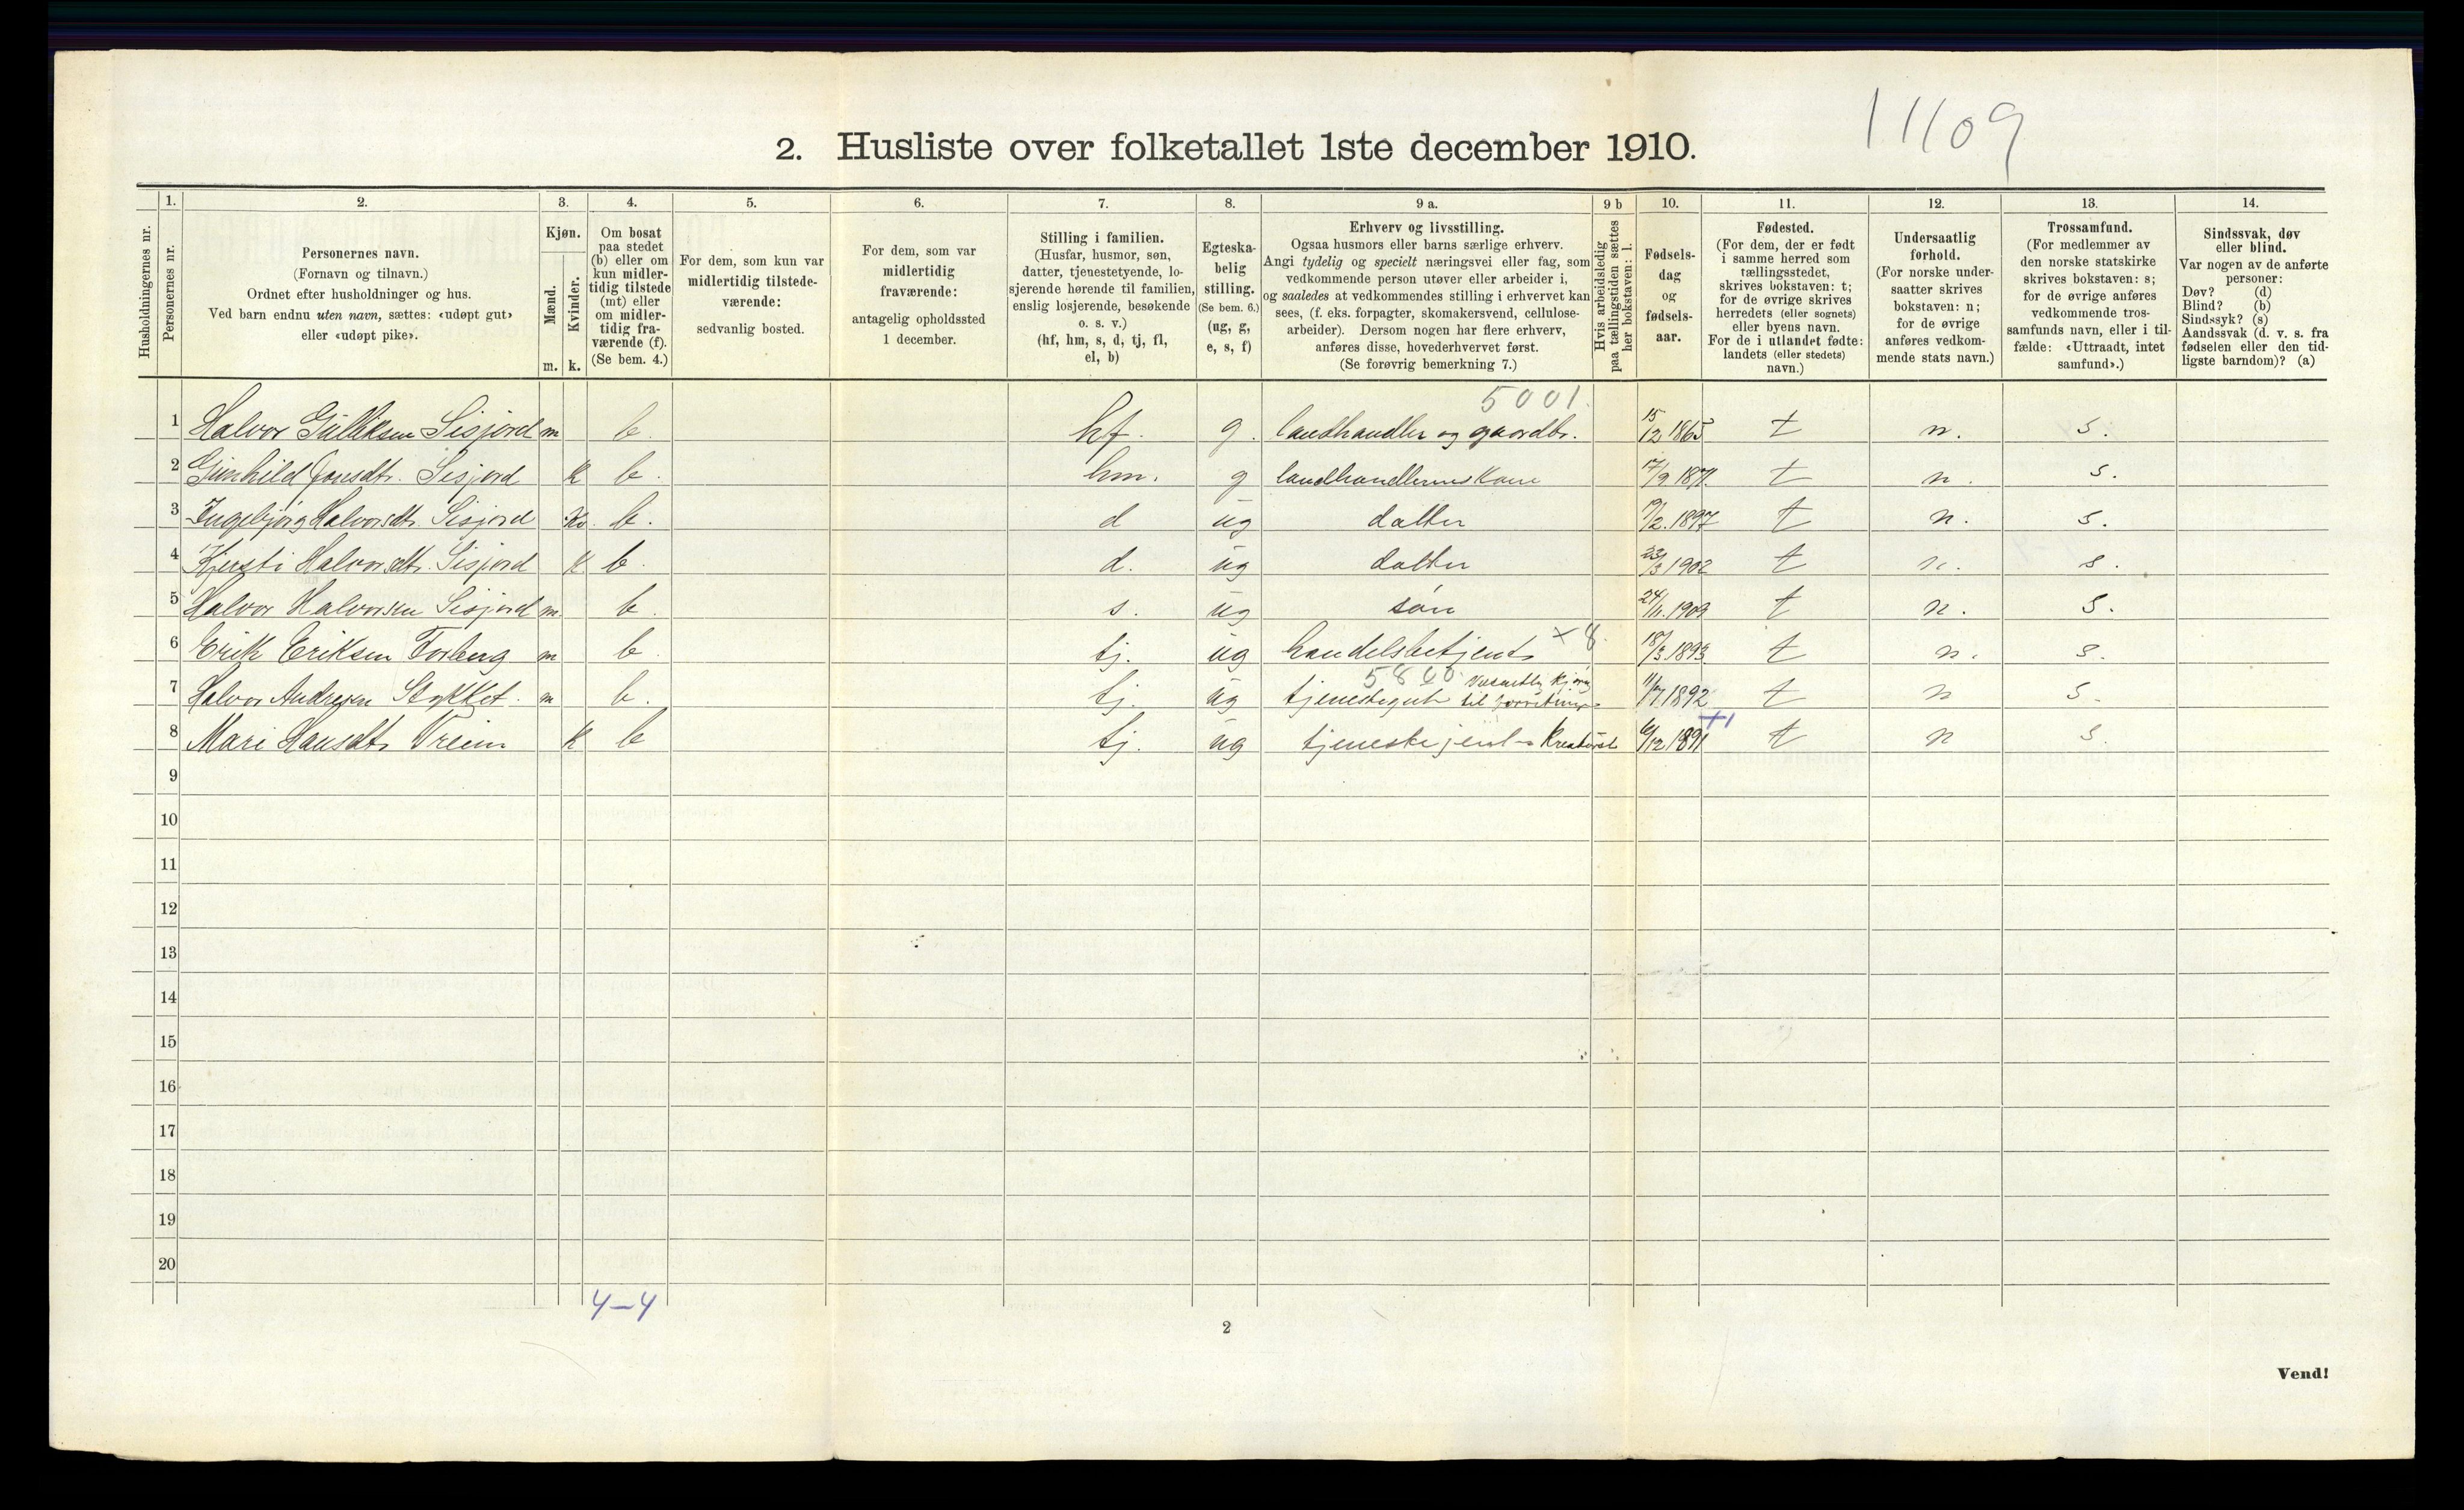 11109
2. Husliste over folketallet 1ste december 1910.
Husholdningernes nr.
1.
Personernes nr.
2.
Personernes navn.
(Fornavn og tilnavn.)
Ordnet efter husholdninger og hus.
Ved barn endnu uten navn, sættes: «udøpt gut»
eller «udøpt pike».
3.
Kjøn.
Mænd.
Kvinder.
m. k.
4.
Om bosat
paa stedet
(b) eller om
kun midler-
tidig tilstede
(mt) eller
om midler-
tidig fra-
værende (f).
(Se bem. 4.)
5.
For dem, som kun var
midlertidig tilstede-
værende:
sedvanlig bosted.
6.
For dem, som var
midlertidig
fraværende:
antagelig opholdssted
1 december.
7.
Stilling i familien.
(Husfar, husmor, søn,
datter, tjenestetyende, lo-
sjerende hørende til familien,
enslig losjerende, besøkende
o. s. v.)
(hf, hm, s, d, tj, fl,
el, b)
8.
Egteska-
belig
stilling.
(Se bem. 6.)
(ug, g,
e, s, f)
9 a.
Erhverv og livsstilling.
Ogsaa husmors eller barns særlige erhverv.
Angi tydelig og specielt næringsvei eller fag, som
vedkommende person utøver eller arbeider i,
og saaledes at vedkommendes stilling i erhvervet kan
sees, (f. eks. forpagter, skomakersvend, cellulose-
arbeider). Dersom nogen har flere erhverv,
anføres disse, hovederhvervet først.
(Se forøvrig bemerkning 7.)
9 b
Hvis arbeidsledig
paa tællingstiden sættes
her bokstaven: l.
10.
Fødsels-
dag
og
fødsels-
aar.
11.
Fødested.
(For dem, der er født
i samme herred som
tællingsstedet,
skrives bokstaven: t;
for de øvrige skrives
herredets (eller sognets)
eller byens navn.
For de i utlandet fødte:
landets (eller stedets)
navn.)
12.
Undersaatlig
forhold.
(For norske under-
saatter skrives
bokstaven: n;
for de øvrige
anføres vedkom-
mende stats navn.)
13.
Trossamfund.
(For medlemmer av
den norske statskirke
skrives bokstaven: s;
for de øvrige anføres
vedkommende tros-
samfunds navn, eller i til-
fælde: «Uttraadt, intet
samfund».)
14.
Sindssvak, døv
eller blind.
Var nogen av de anførte
personer:
Døv? (d)
Blind? (b)
Sindssyk? (s)
Aandssvak (d. v. s. fra
fødselen eller den tid-
ligste barndom)? (a)
5001.
1 Halvor Gulliksen Sisjord m b. hf. g. landhandler og gaardbr. 15/12 1865 t n. s.
2 Gunhild Jonsdtr. Sisjord k b. hm. g landhandlerens kone 17/9 1871. t n. s.
3 Ingebjørg Halvorsdtr. Sisjord kv. b. d ug datter /2. 1897 t n. s.
4 Kjersti Halvorsdtr. Sisjord k b. d. ug datter 23/3 1902 t n. s.
5 Halvor Halvorsen Sisjord m b. s. ug søn 24/11. 1909 t n. s.
6 Erik Eriksen Torberg m b. tj. ug handelsbetjent x 8. 18/3. 1893 t n. s.
5860
7 Halvor Andresen Stykket. m b. tj. ug tjenestegut til forretning 11/7 1892 t n s.
8 Mari Hansdtr Vreim k b tj. ug tjenestejente Kreaturst 6/12 1891 +1 t n s.
9
10
11
12
13
14
15
16
17
18
19
20
4-4
2
Vend!